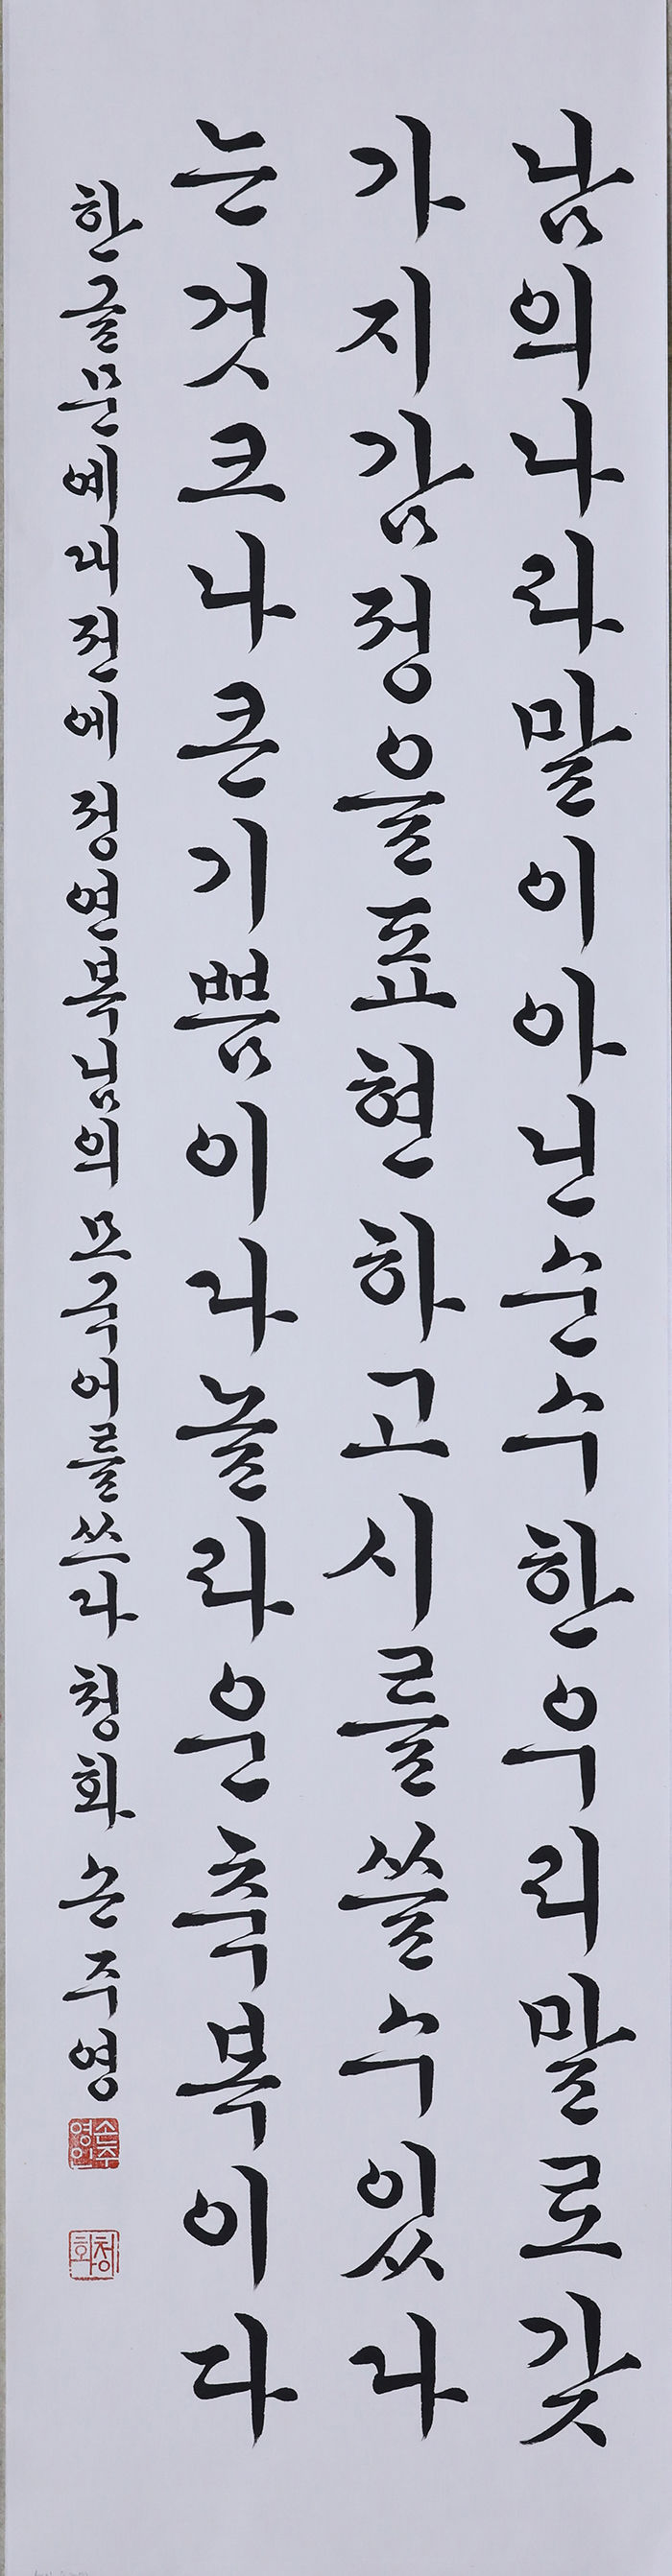 남의나라말이아닌순수한우리말로갖
가지감정을표현하고시를쓸수있다
는것크나큰기쁨이다놀라운축복이다
한글문예대전에 정연복님의 모국어를쓰다 청화 손주영
손주영인
청화